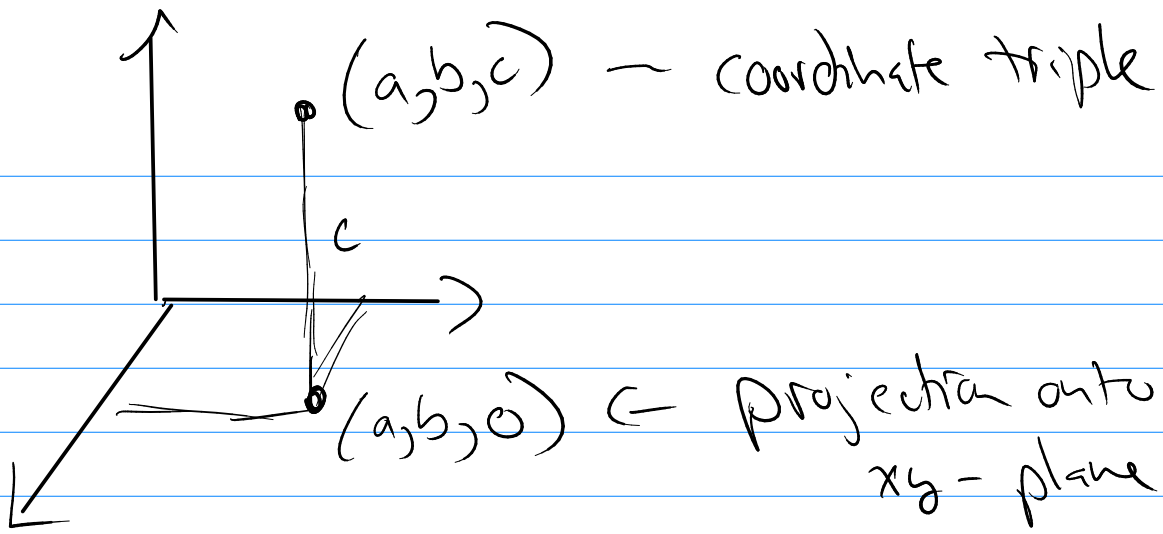 (a,b,c) — coordinate triple
c
(a,b,0) ← projection onto
xy - plane